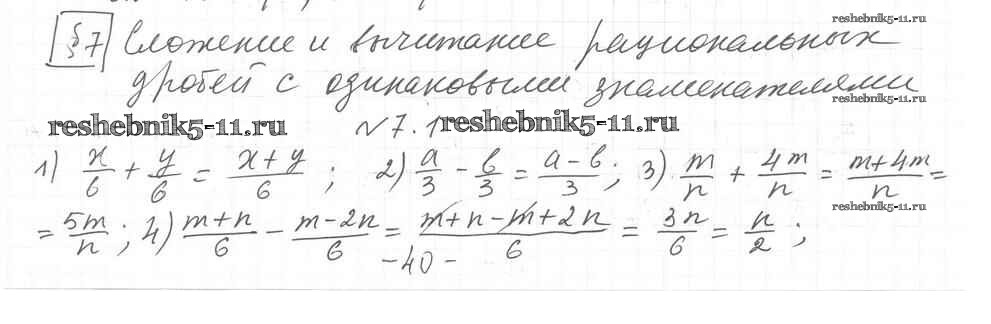 reshebnik5-11.ru
§7 Сложение и вычитание рациональных
дробей с одинаковыми знаменателями
reshebnik5-11.ru
reshebnik5-11.ru №7.1 reshebnik5-11.ru
1) x/6 + y/6 = (x+y)/6 ; 2) a/3 - b/3 = (a-b)/3 ; 3) m/n + 4m/n = (m+4m)/n =
reshebnik5-11.ru
= 5m/n ; 4) (m+n)/6 - (m-2n)/6 = (m+n-m+2n)/6 = 3n/6 = n/2 ;
-40-